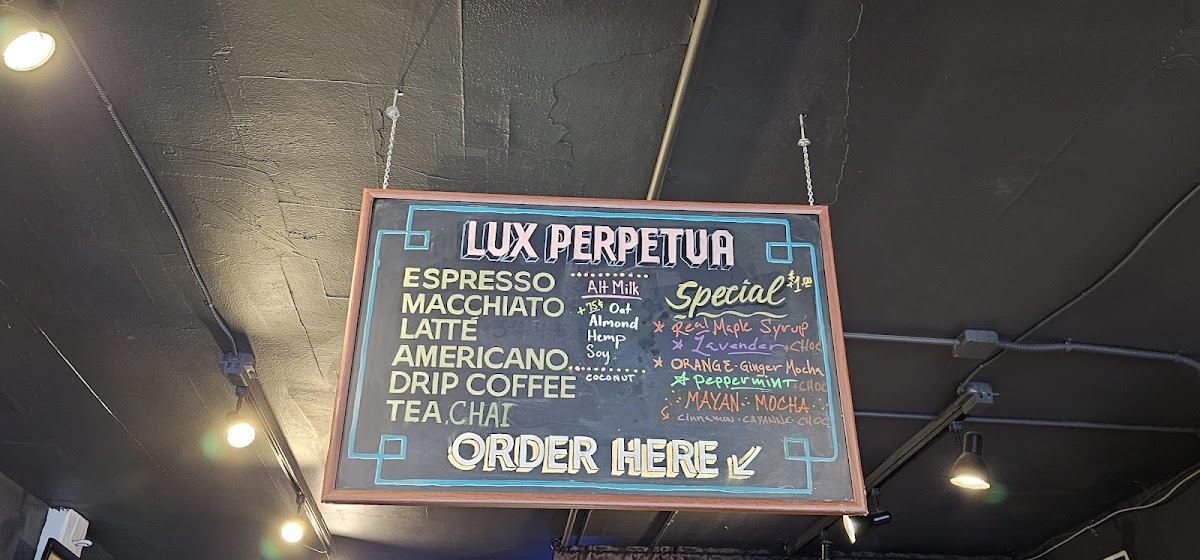 LUX PERPETUA
ESPRESSO
MACCHIATO
LATTÉ
AMERICANO
DRIP COFFEE
TEA, CHAI
Alt Milk
+75¢ Oat
Almond
Hemp
Soy
COCONUT
Special $1.00
Real Maple Syrup
Lavender + CHOC
ORANGE · Ginger Mocha
Peppermint CHOC
MAYAN MOCHA
Cinnamon · CAYANNE · CHOC
ORDER HERE